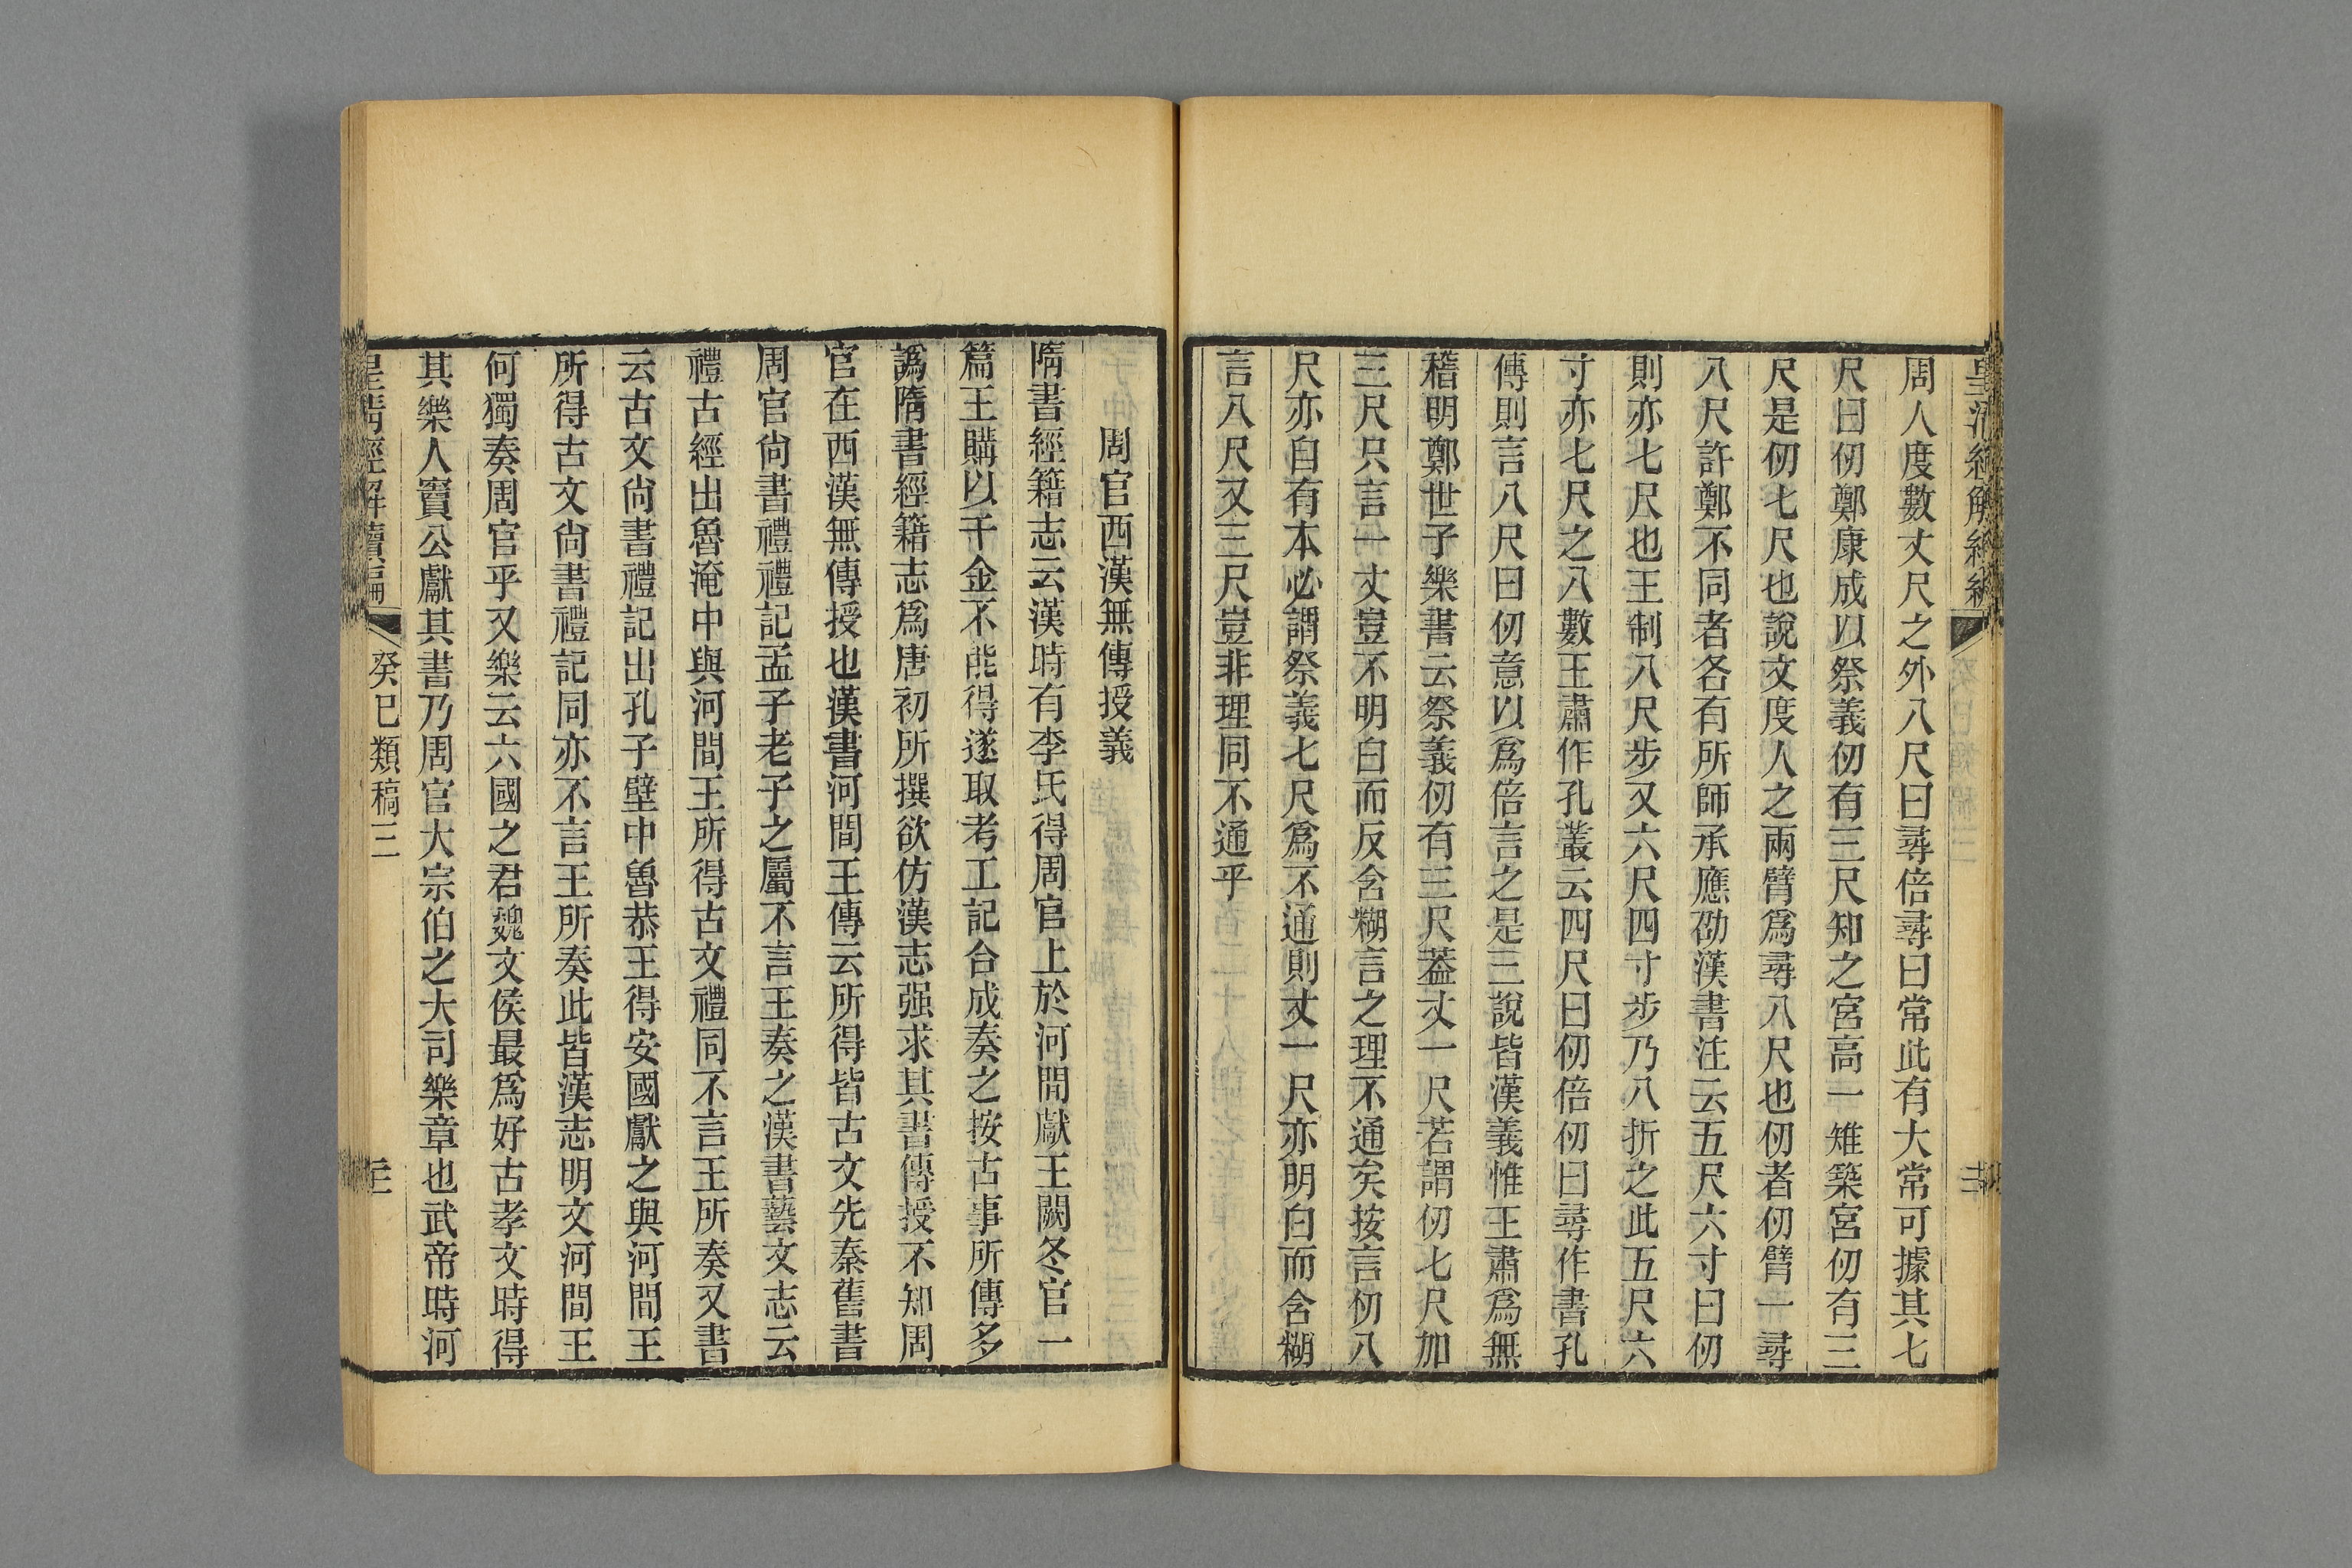 周人度數丈尺之外八尺曰尋倍尋曰常此有大常可據其七
尺曰仞鄭康成以祭義仞有三尺知之宮高一雉築宮仞有三
尺是仞七尺也說文度人之兩臂爲尋八尺也仞者仞臂一尋
八尺許鄭不同者各有所師承應劭漢書注云五尺六寸曰仞
則亦七尺也王制八尺步又六尺四寸步乃八折之此五尺六
寸亦七尺之八數王肅作孔叢云四尺曰仞倍仞曰尋作書孔
傳則言八尺曰仞意以爲倍言之是三說皆漢義惟王肅爲無
稽明鄭世子樂書云祭義仞有三尺蓋丈一尺若謂仞七尺加
三尺只言一丈豈不明白而反含糊言之理不通矣按言仞八
尺亦自有本必謂祭義七尺爲不通則丈一尺亦明白而含糊
言八尺又三尺豈非理同不通乎
周官西漢無傳授義
隋書經籍志云漢時有李氏得周官上於河間獻王闕冬官一
篇王購以千金不能得遂取考工記合成奏之按古事所傳多
譌隋書經籍志爲唐初所撰欲仿漢志强求其書傳授不知周
官在西漢無傳授也漢書河間王傳云所得皆古文先秦舊書
周官尙書禮禮記孟子老子之屬不言王奏之漢書藝文志云
禮古經出魯淹中與河間王所得古文禮同不言王所奏又書
云古文尙書禮記出孔子壁中魯恭王得安國獻之與河間王
所得古文尙書禮記同亦不言王所奏此皆漢志明文河間王
何獨奏周官乎又樂云六國之君魏文侯最爲好古孝文時得
其樂人竇公獻其書乃周官大宗伯之大司樂章也武帝時河
皇清經解續編 癸巳類稿三